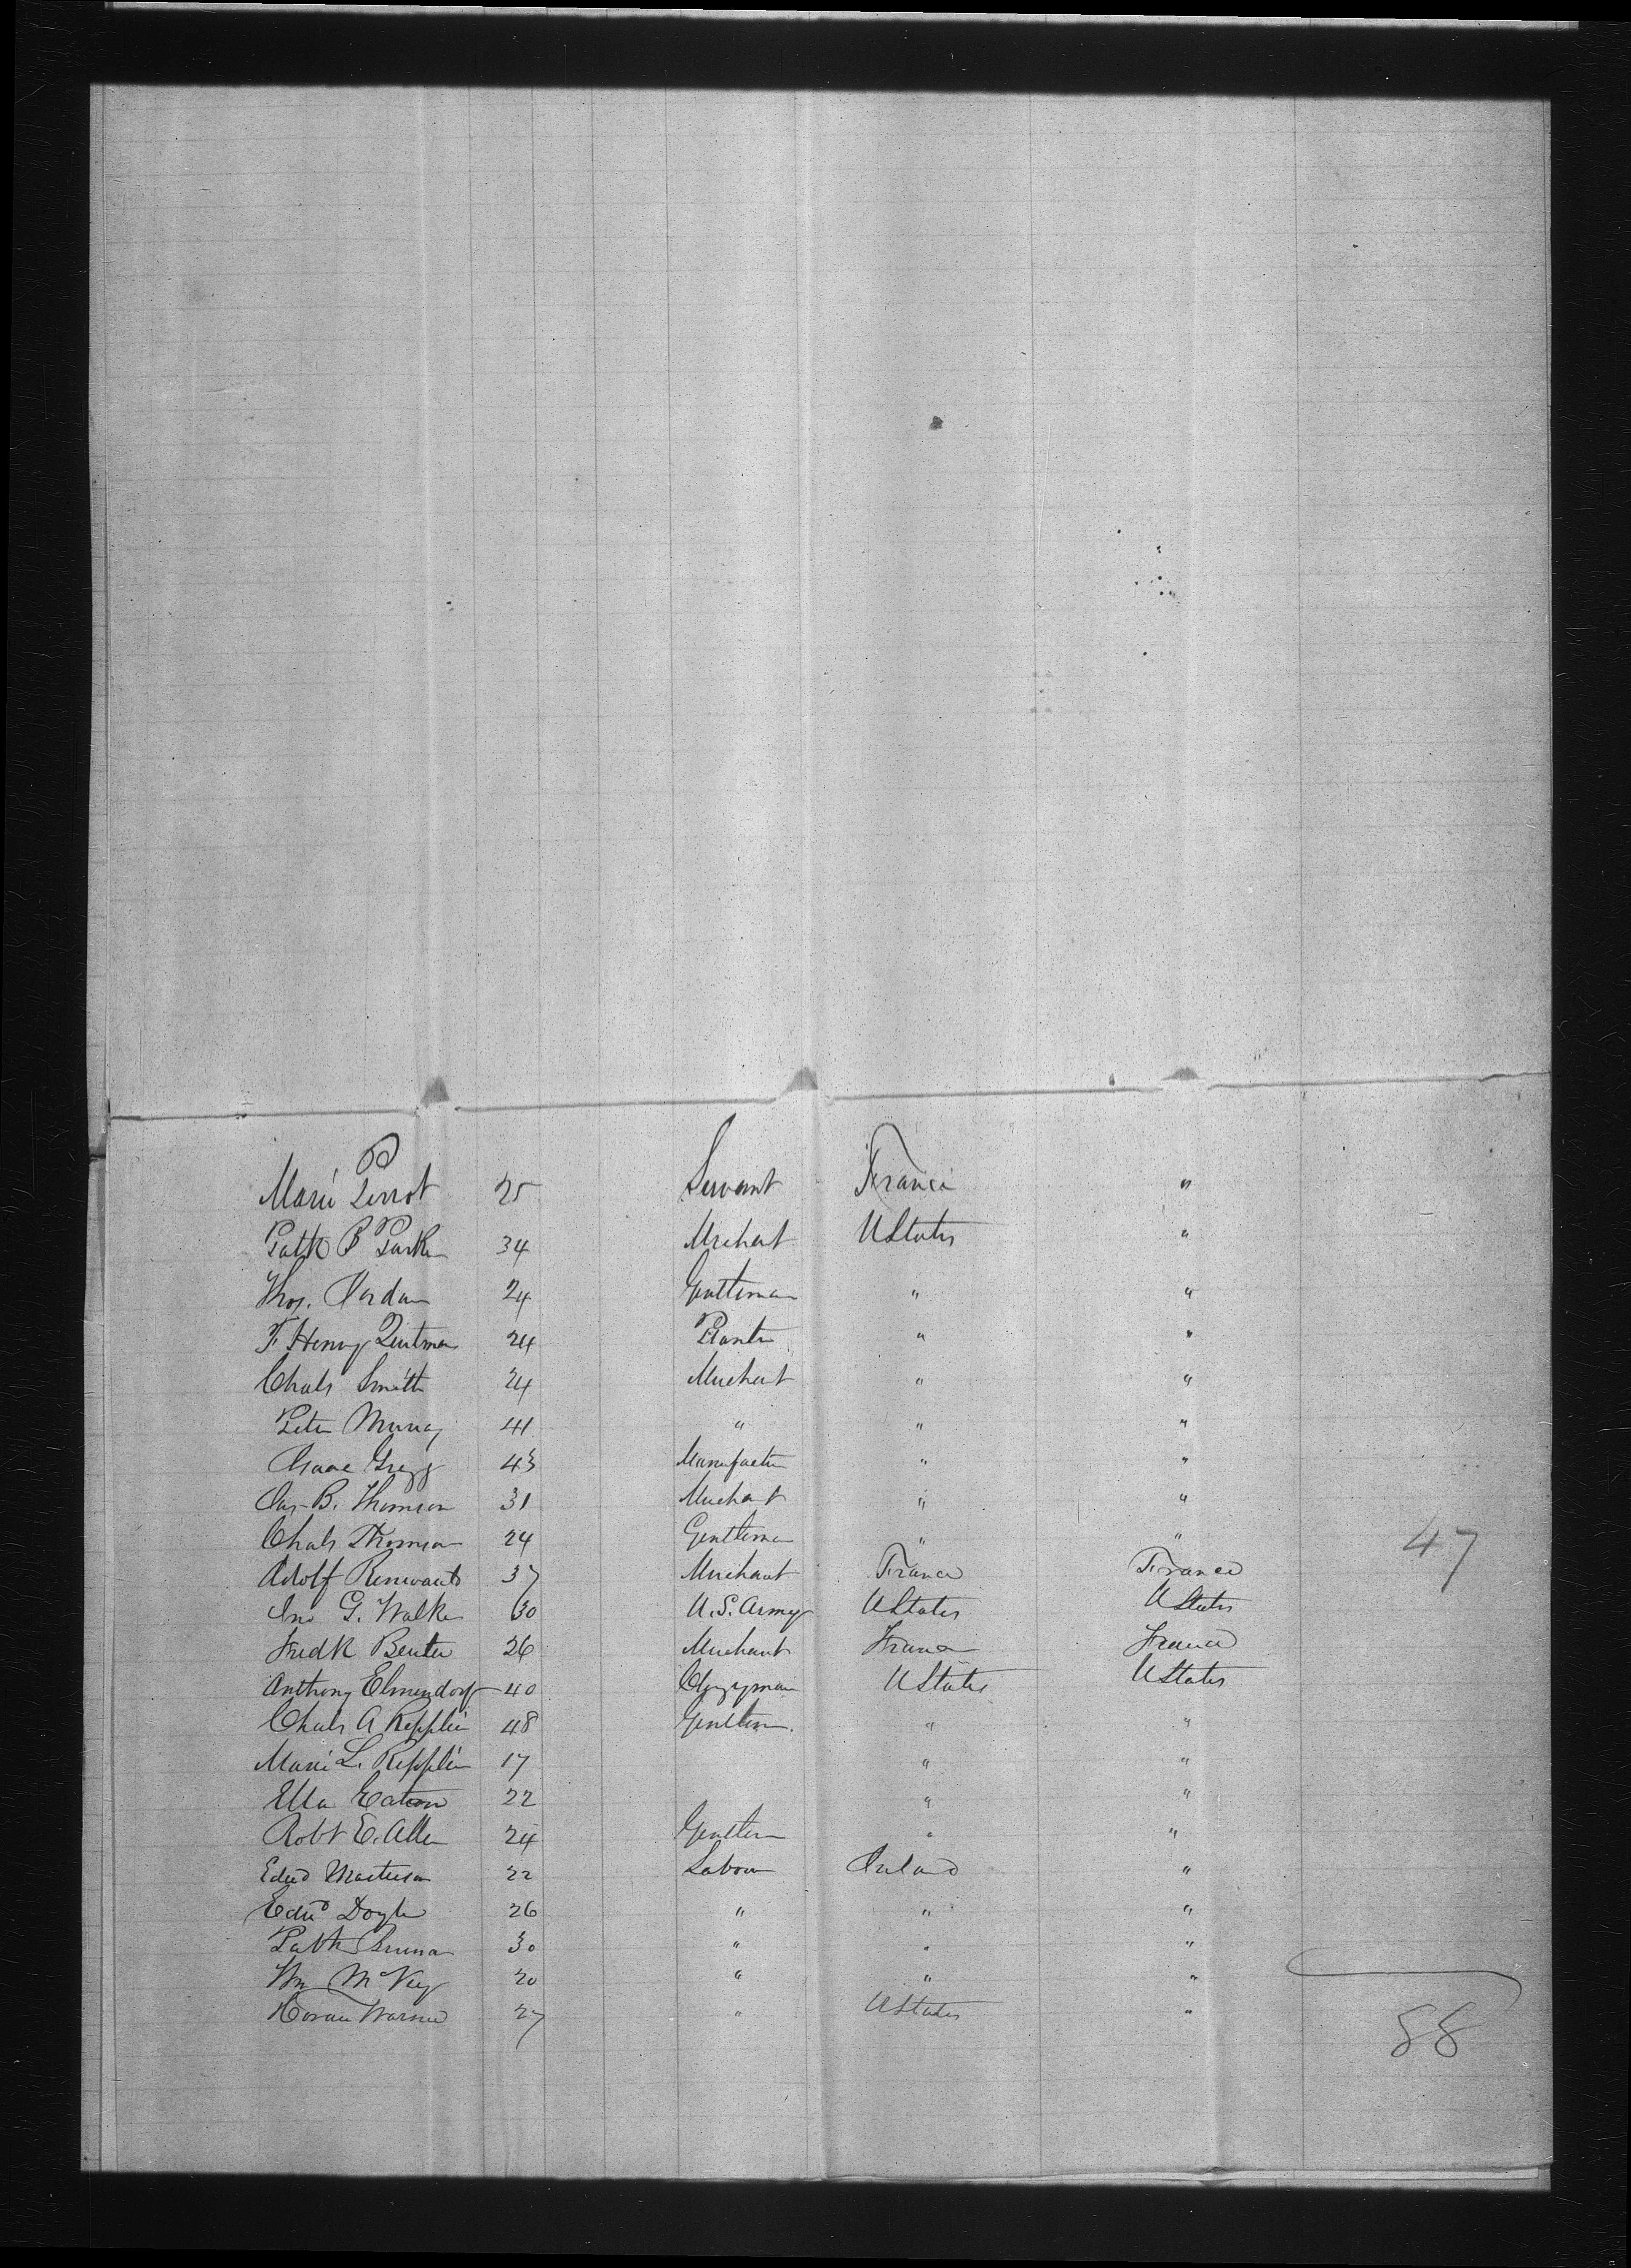 Marie Perrot 25 Servant France "
Patk B Parker 34 Merchant UStates "
Thos. Jordan 24 Gentleman " "
F. Henry Quitman 24 Planter " "
Chals Smith 24 Merchant " "
Peter Murray 41 " " "
Isaac Gregg 43 Manufacter " "
Jas B. Thomson 31 Merchant " "
Chals Thomson 24 Gentleman " "
47
Adolf 37 Merchant France France
Jno G. Walker 30 U.S. Army UStates UStates
Fredk Beuter 26 Merchant France France
Anthony Elmendorf 40 Clergyman UStates UStates
Chals A Repplier 48 Gentlem. " "
Marie L. Repplier 17 " "
Ella Eaton 22 " "
Robt E. Allen 24 Gentlem " "
Edwd Masterson 22 Labour Ireland "
Edwd Doyle 26 " " "
Patk 30 " " "
Wm McVey 20 " " "
Warner 27 " UStates "
88